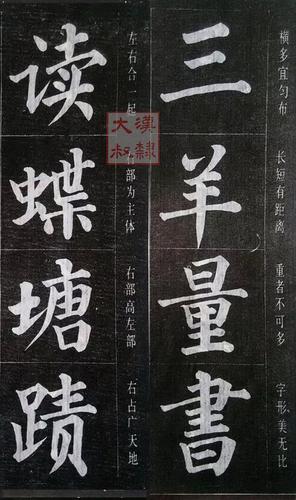 横多宜匀布
三
长短有距离
羊
重者不可多
量
字形美无比
書
左右合一起
读
部为主体
蝶
右部高左部
塘
右占广天地
蹟
漢隸
大叔